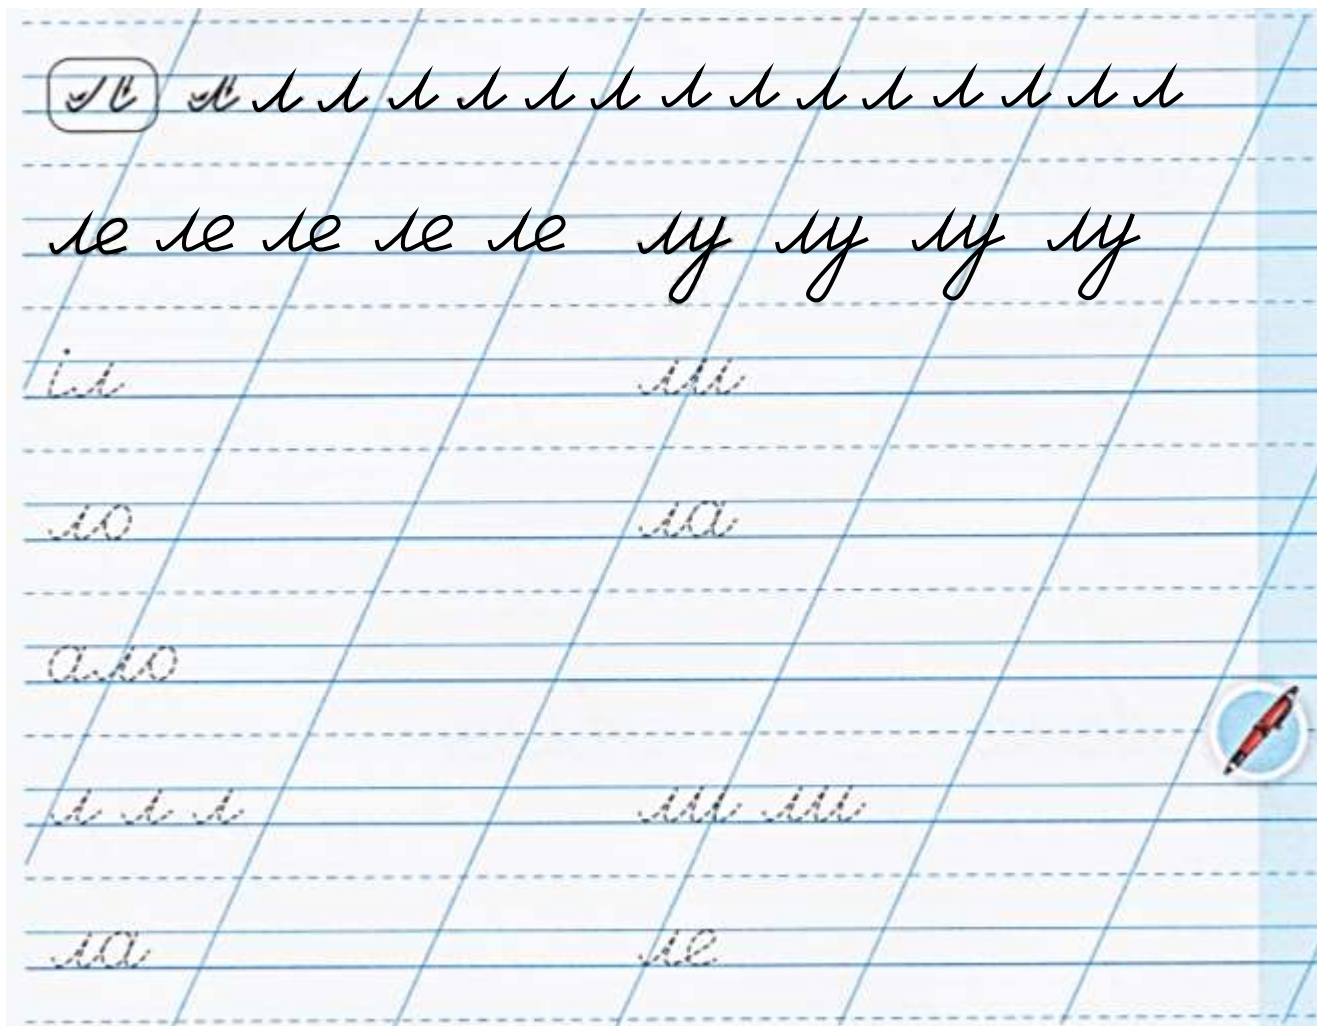 л л л л л л л л л л л л л л л
ле ле ле ле ле лу лу лу лу
іл ли
ло ла
ало
л л л ли ли
ла ле